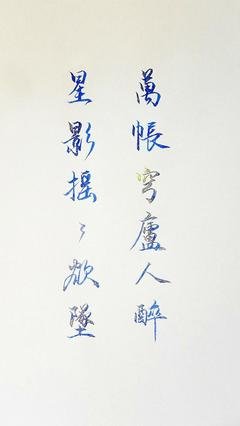 萬帳穹廬人醉
星影摇〻欲墜